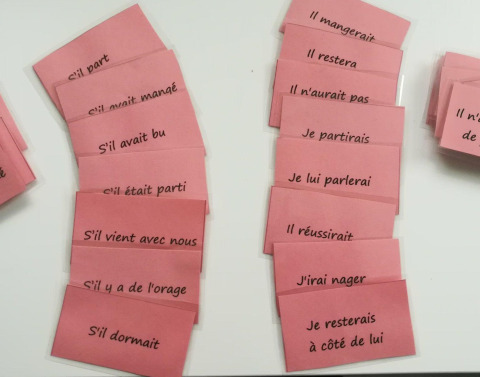 S'il part
S'il avait mangé
S'il avait bu
S'il était parti
S'il vient avec nous
S'il y a de l'orage
S'il dormait
Il mangerait
Il restera
Il n'aurait pas
Je partirais
Je lui parlerai
Il réussirait
J'irai nager
Je resterais
à côté de lui
Il n'a
de